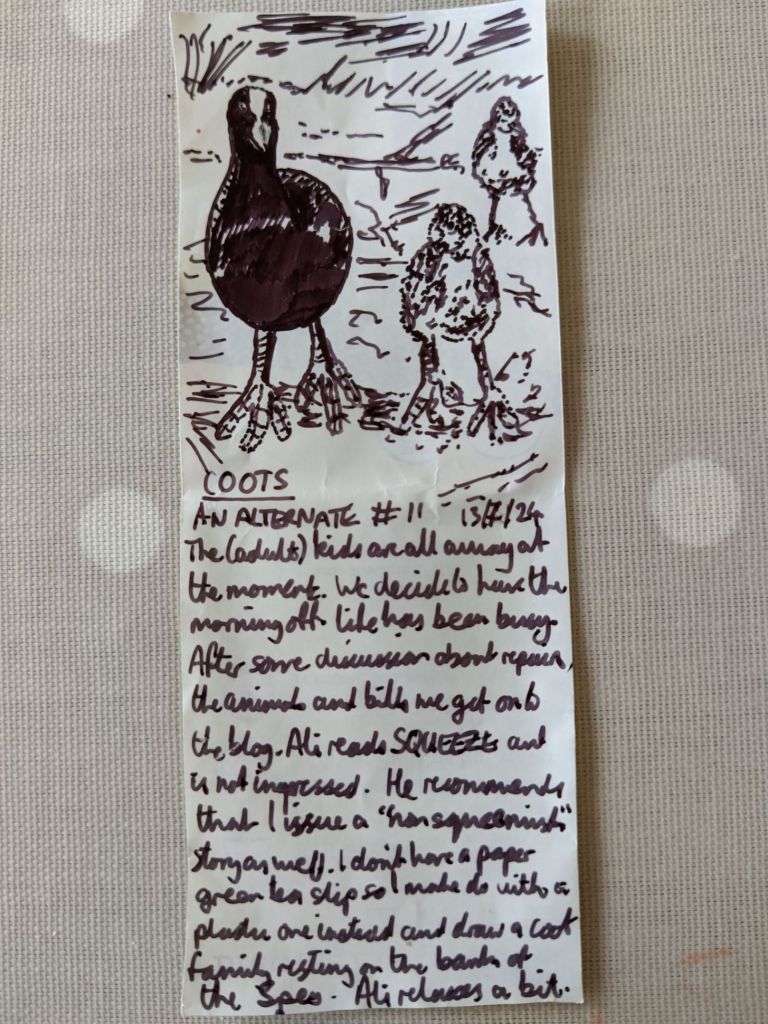 COOTS
AN ALTERNATE #11 13/7/24
The (adult) kids are all away at
the moment. We decide to have the
morning off. Life has been busy.
After some discussion about repairs,
the animals and bills we get onto
the blog. Ali reads SQUEEZE and
is not impressed. He recommends
that I issue a "non squeamish"
story as well. I don't have a paper
green tea slip so I make do with a
plastic one instead and draw a coot
family resting on the bank of
the Spey. Ali relaxes a bit.